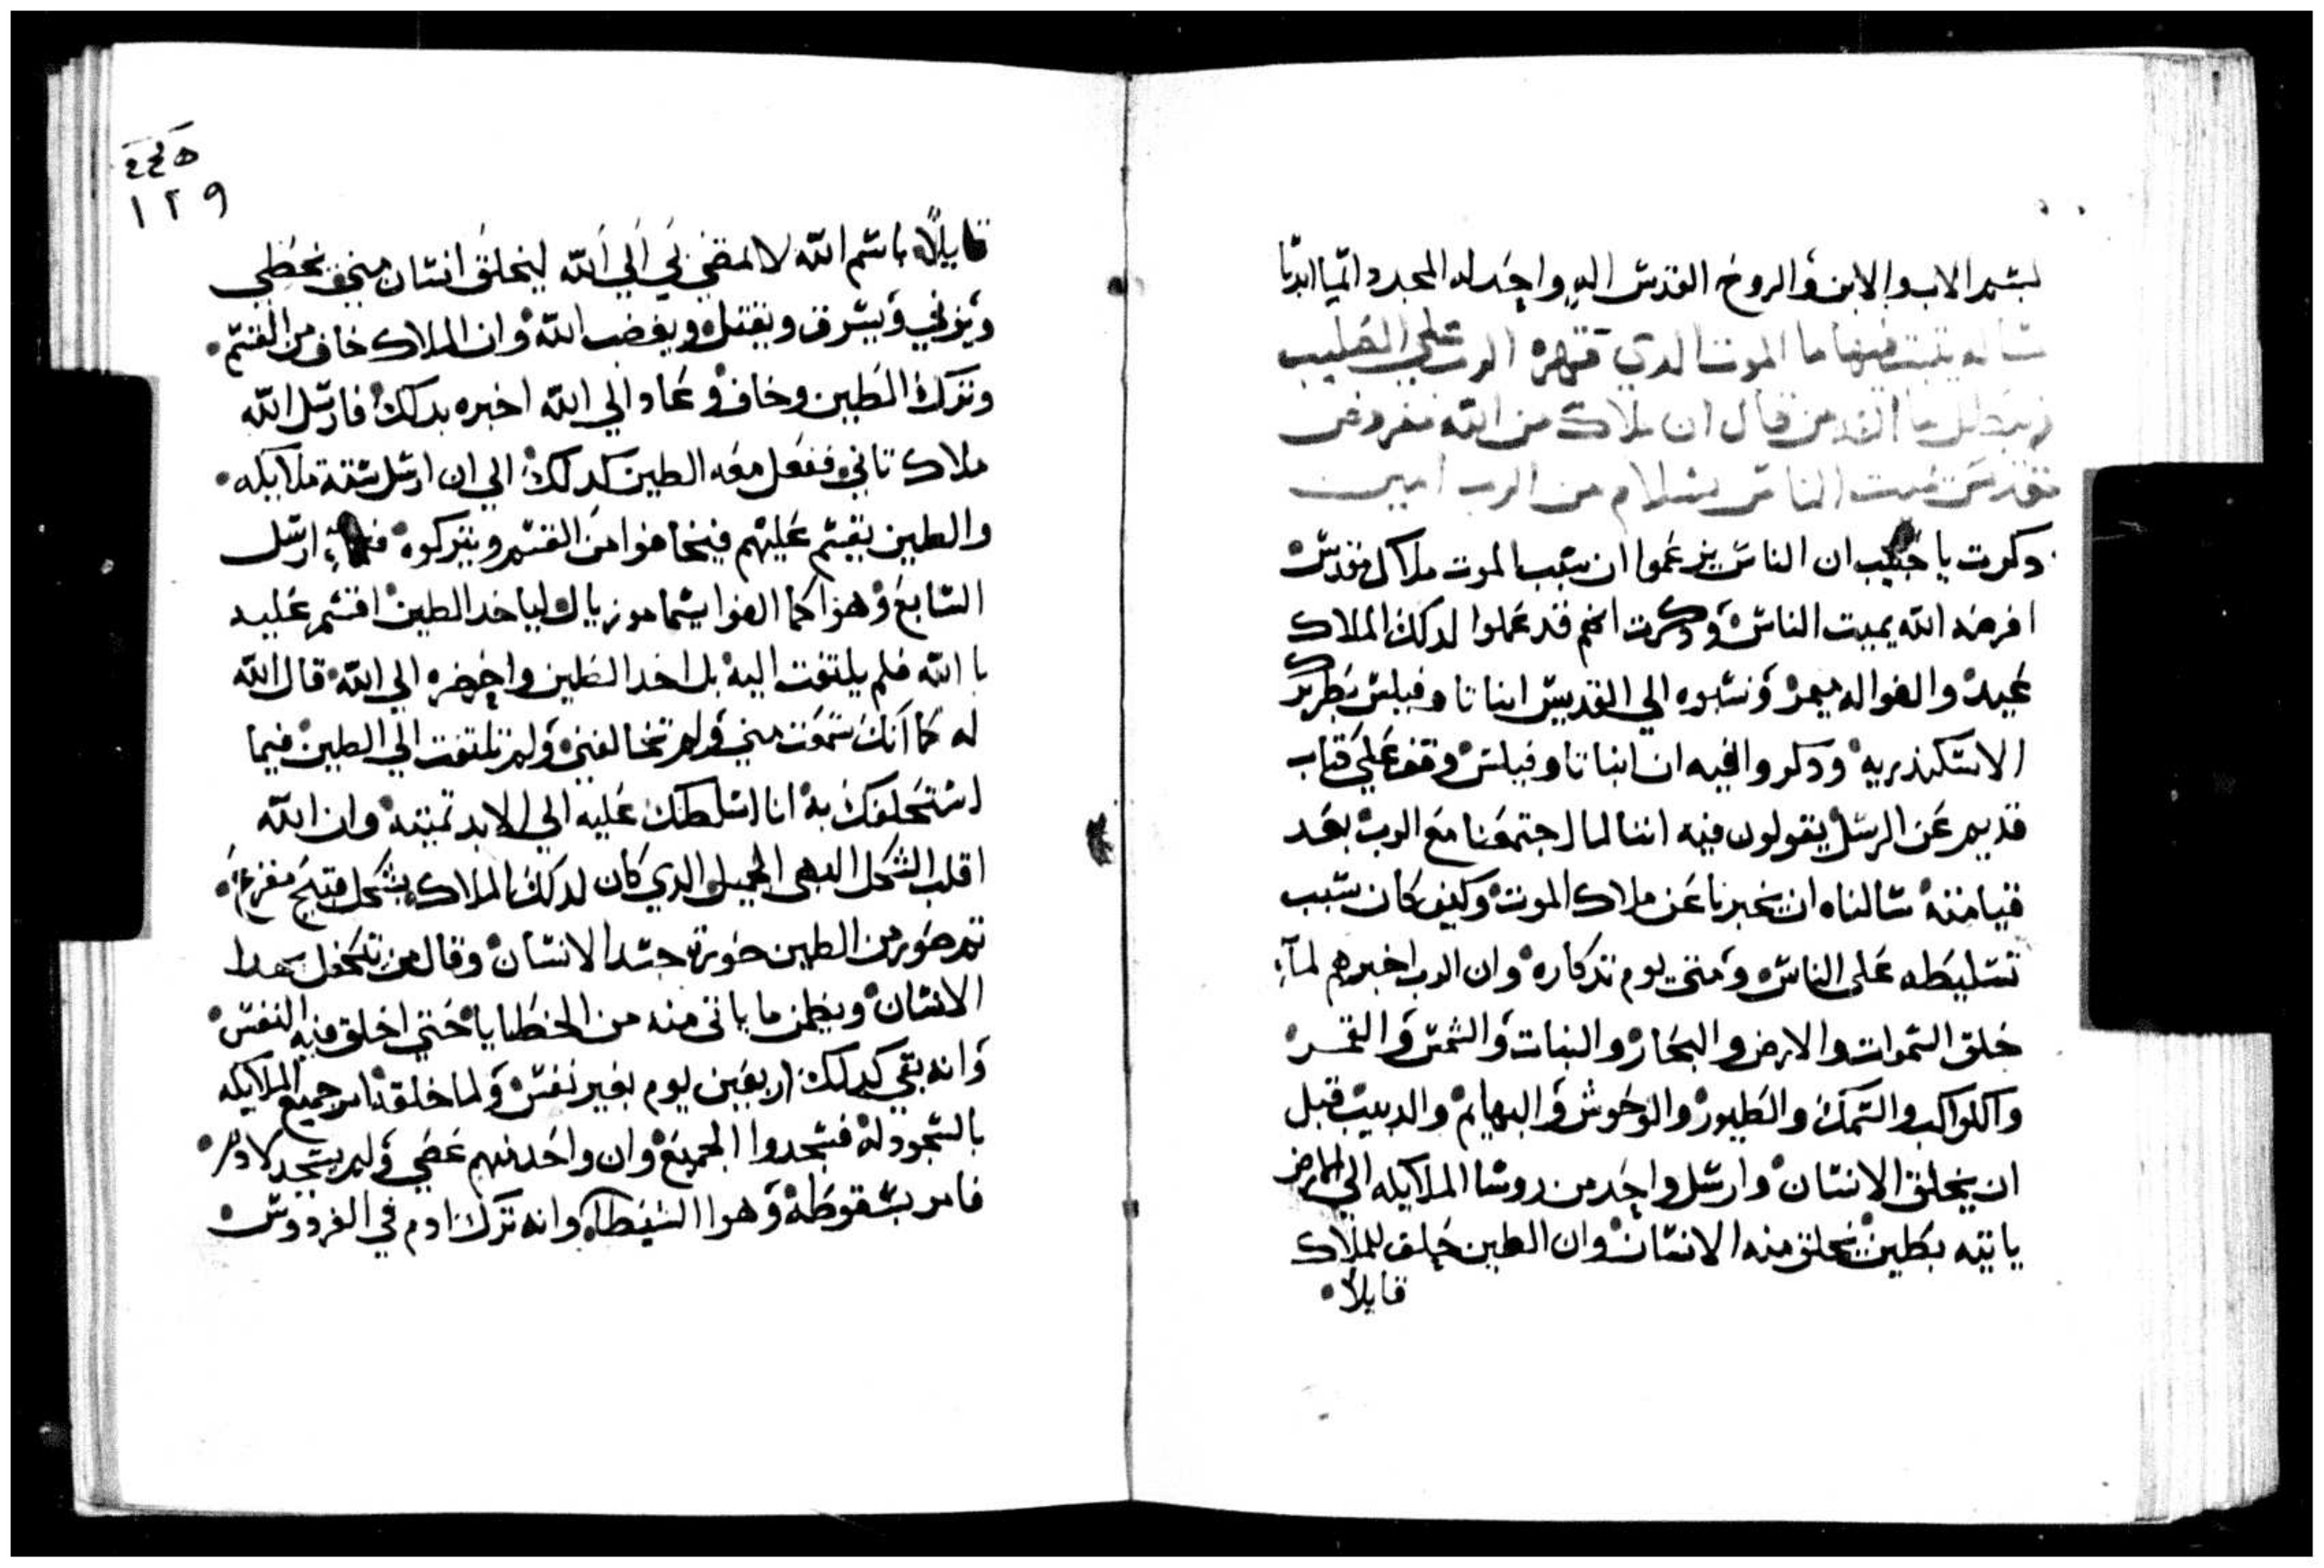 بسم الاب والابن والروح القدس اله واحد له المجد دايما ابديا
رساله يثبت فيها ما الموت الدي قهره الرب علي الصليب
ويبطل ما القد من قال ان ملاك من الله مفروض
مقدس يميت الناس بسلام من الرب امين
دكرت يا حبيب ان الناس يزعموا ان سبب الموت ملاك مقدس
افرضه الله يميت الناس ودكرت انهم قد عملوا لدلك الملاك
عيد والفوا له ميمر ونسبوه الي القديس انبا تاوفيلس بطريرك
الاسكندريه ودكروا فيه ان انبا تاوفيلس وقف علي كتاب
قديم عن الرسل يقولون فيه اننا لما اجتمعنا مع الرب بعد
قيامته سالناه ان يخبرنا عن ملاك الموت وكيف كان سبب
تسليطه علي الناس ومتي يوم تدكاره وان الرب اخبرهم لما
خلق السموات والارض والبحار والنبات والشمس والقمر
والكواكب والسمك والطيور والوحوش والبهايم والدبيب قبل
ان يخلق الانسان وارسل واحد من روسا الملايكه الي الارض
ياتيه بطين يخلق منه الانسان وان الطين حلف للملاك
قايلا
٤٤٥
١٢٩
قايلا باسم الله لا تمضي بي الي الله ليخلق انسان مني يخطي
ويزني ويسرق ويقتل ويغضب الله وان الملاك خاف من القسم
وترك الطين وخاف وعاد الي الله اخبره بدلك فارسل الله
ملاك تاني ففعل معه الطين كدلك الي ان ارسل ستة ملايكه
والطين يقسم عليهم فيخافوا من القسم ويتركوه ارسل
السابع وهوا كما الفوا يسما موزيال لياخد الطين اقسم عليه
با الله فلم يلتفت اليه بل اخد الطين واحضره الي الله قال الله
له كما انك سمعت مني ولم تخالفني ولم تلتفت الي الطين فيما
استحلفك به انا اسلطك عليه الي الابد تميته وان الله
اقلب الشكل البهي الجميل الدي كان لدلك الملاك بشكل قبيح مفزع
تم صور من الطين صورة جسد الانسان وقال من تكفل بهدا
الانسان ويضمن ما ياتي منه من الخطايا حتي اخلق فيه النفس
وانه بقي كدلك اربعين يوم بغير نفس ولما خلقه امر جميع الملايكه
بالسجود له فسجدوا الجميع وان واحد منهم عصي ولم يسجد لادم
فامر بسقوطه وهوا الشيطان وانه ترك ادم في الفردوس